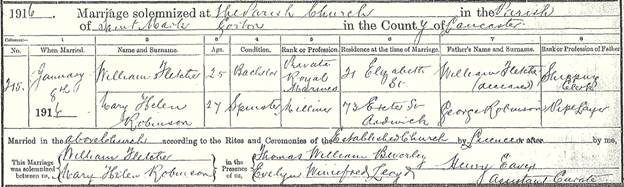 1916 Marriage solemnized at the Parish Church in the Parish
of Saint Mark Gorton in the County of Lancaster
Columns:— 1 2 3 4 5 6 7 8
No. When Married. Name and Surname. Age. Condition. Rank or Profession. Residence at the time of Marriage. Father's Name and Surname. Rank or Profession of Father
315 January 8th 1916 William Fletcher 25 Bachelor Private Royal 31 Elizabeth St. William Fletcher (deceased) Shipping Clerk
Mary Helen Robinson 27 Spinster Milliner 73 Exeter St. Ardwick George Robinson Pipe Layer
Married in the above Church according to the Rites and Ceremonies of the Established Church by Licence or after by me,
This Marriage was solemnized between us, William Fletcher Mary Helen Robinson in the Presence of us, Thomas William Beverley Evelyn Winifred Henry Assistant Curate